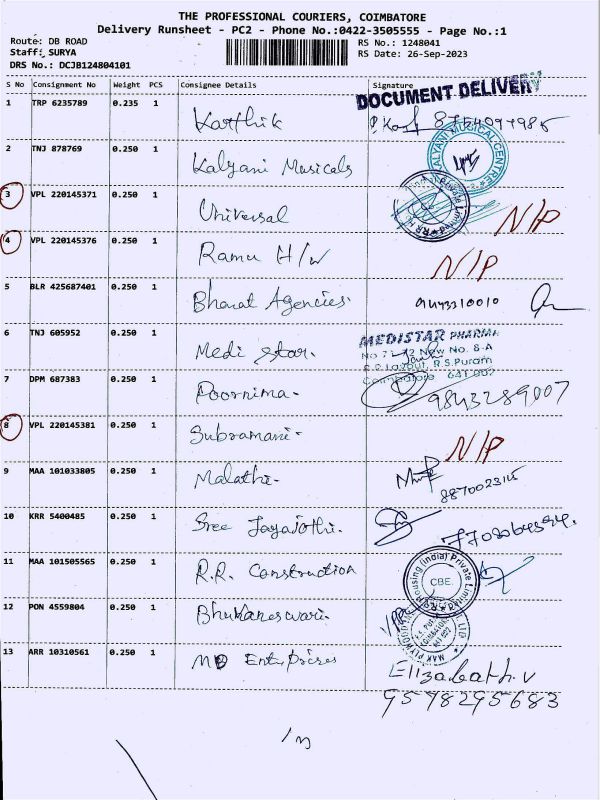 THE PROFESSIONAL COURIERS, COIMBATORE
Delivery Runsheet - PC2 - Phone No.:0422-3505555 - Page No.:1
Route: DB ROAD
Staff: SURYA
DRS No.: DCJB124804101
RS No.: 1248041
RS Date: 26-Sep-2023
S No Consignment No Weight PCS Consignee Details Signature
DOCUMENT DELIVERY
1 TRP 6235789 0.235 1 Karthik
2 TNJ 878769 0.250 1 Kalyani Musicals
KALYANI MUSICAL CENTRE
3 VPL 220145371 0.250 1 Universal N/P
4 VPL 220145376 0.250 1 Ramu H/w N/P
5 BLR 425687401 0.250 1 Bharat Agencies.
6 TNJ 605952 0.250 1 Medi Star.
MEDISTAR PHARMA
New No. 8-A
R.S.Puram
Coimbatore 641 002
7 DPM 687383 0.250 1 Poornima - 9843289007
8 VPL 220145381 0.250 1 Subramani - N/P
9 MAA 101033805 0.250 1 Malathi - 
10 KRR 5400485 0.250 1 Sree Jayajothi.
11 MAA 101505565 0.250 1 R.R. Construction
Housing (India) Private Limited
CBE.
12 PON 4559804 0.250 1 Bhuvaneswari.
13 ARR 10310561 0.250 1 MD Entuprises Elizabath.V
9598295683